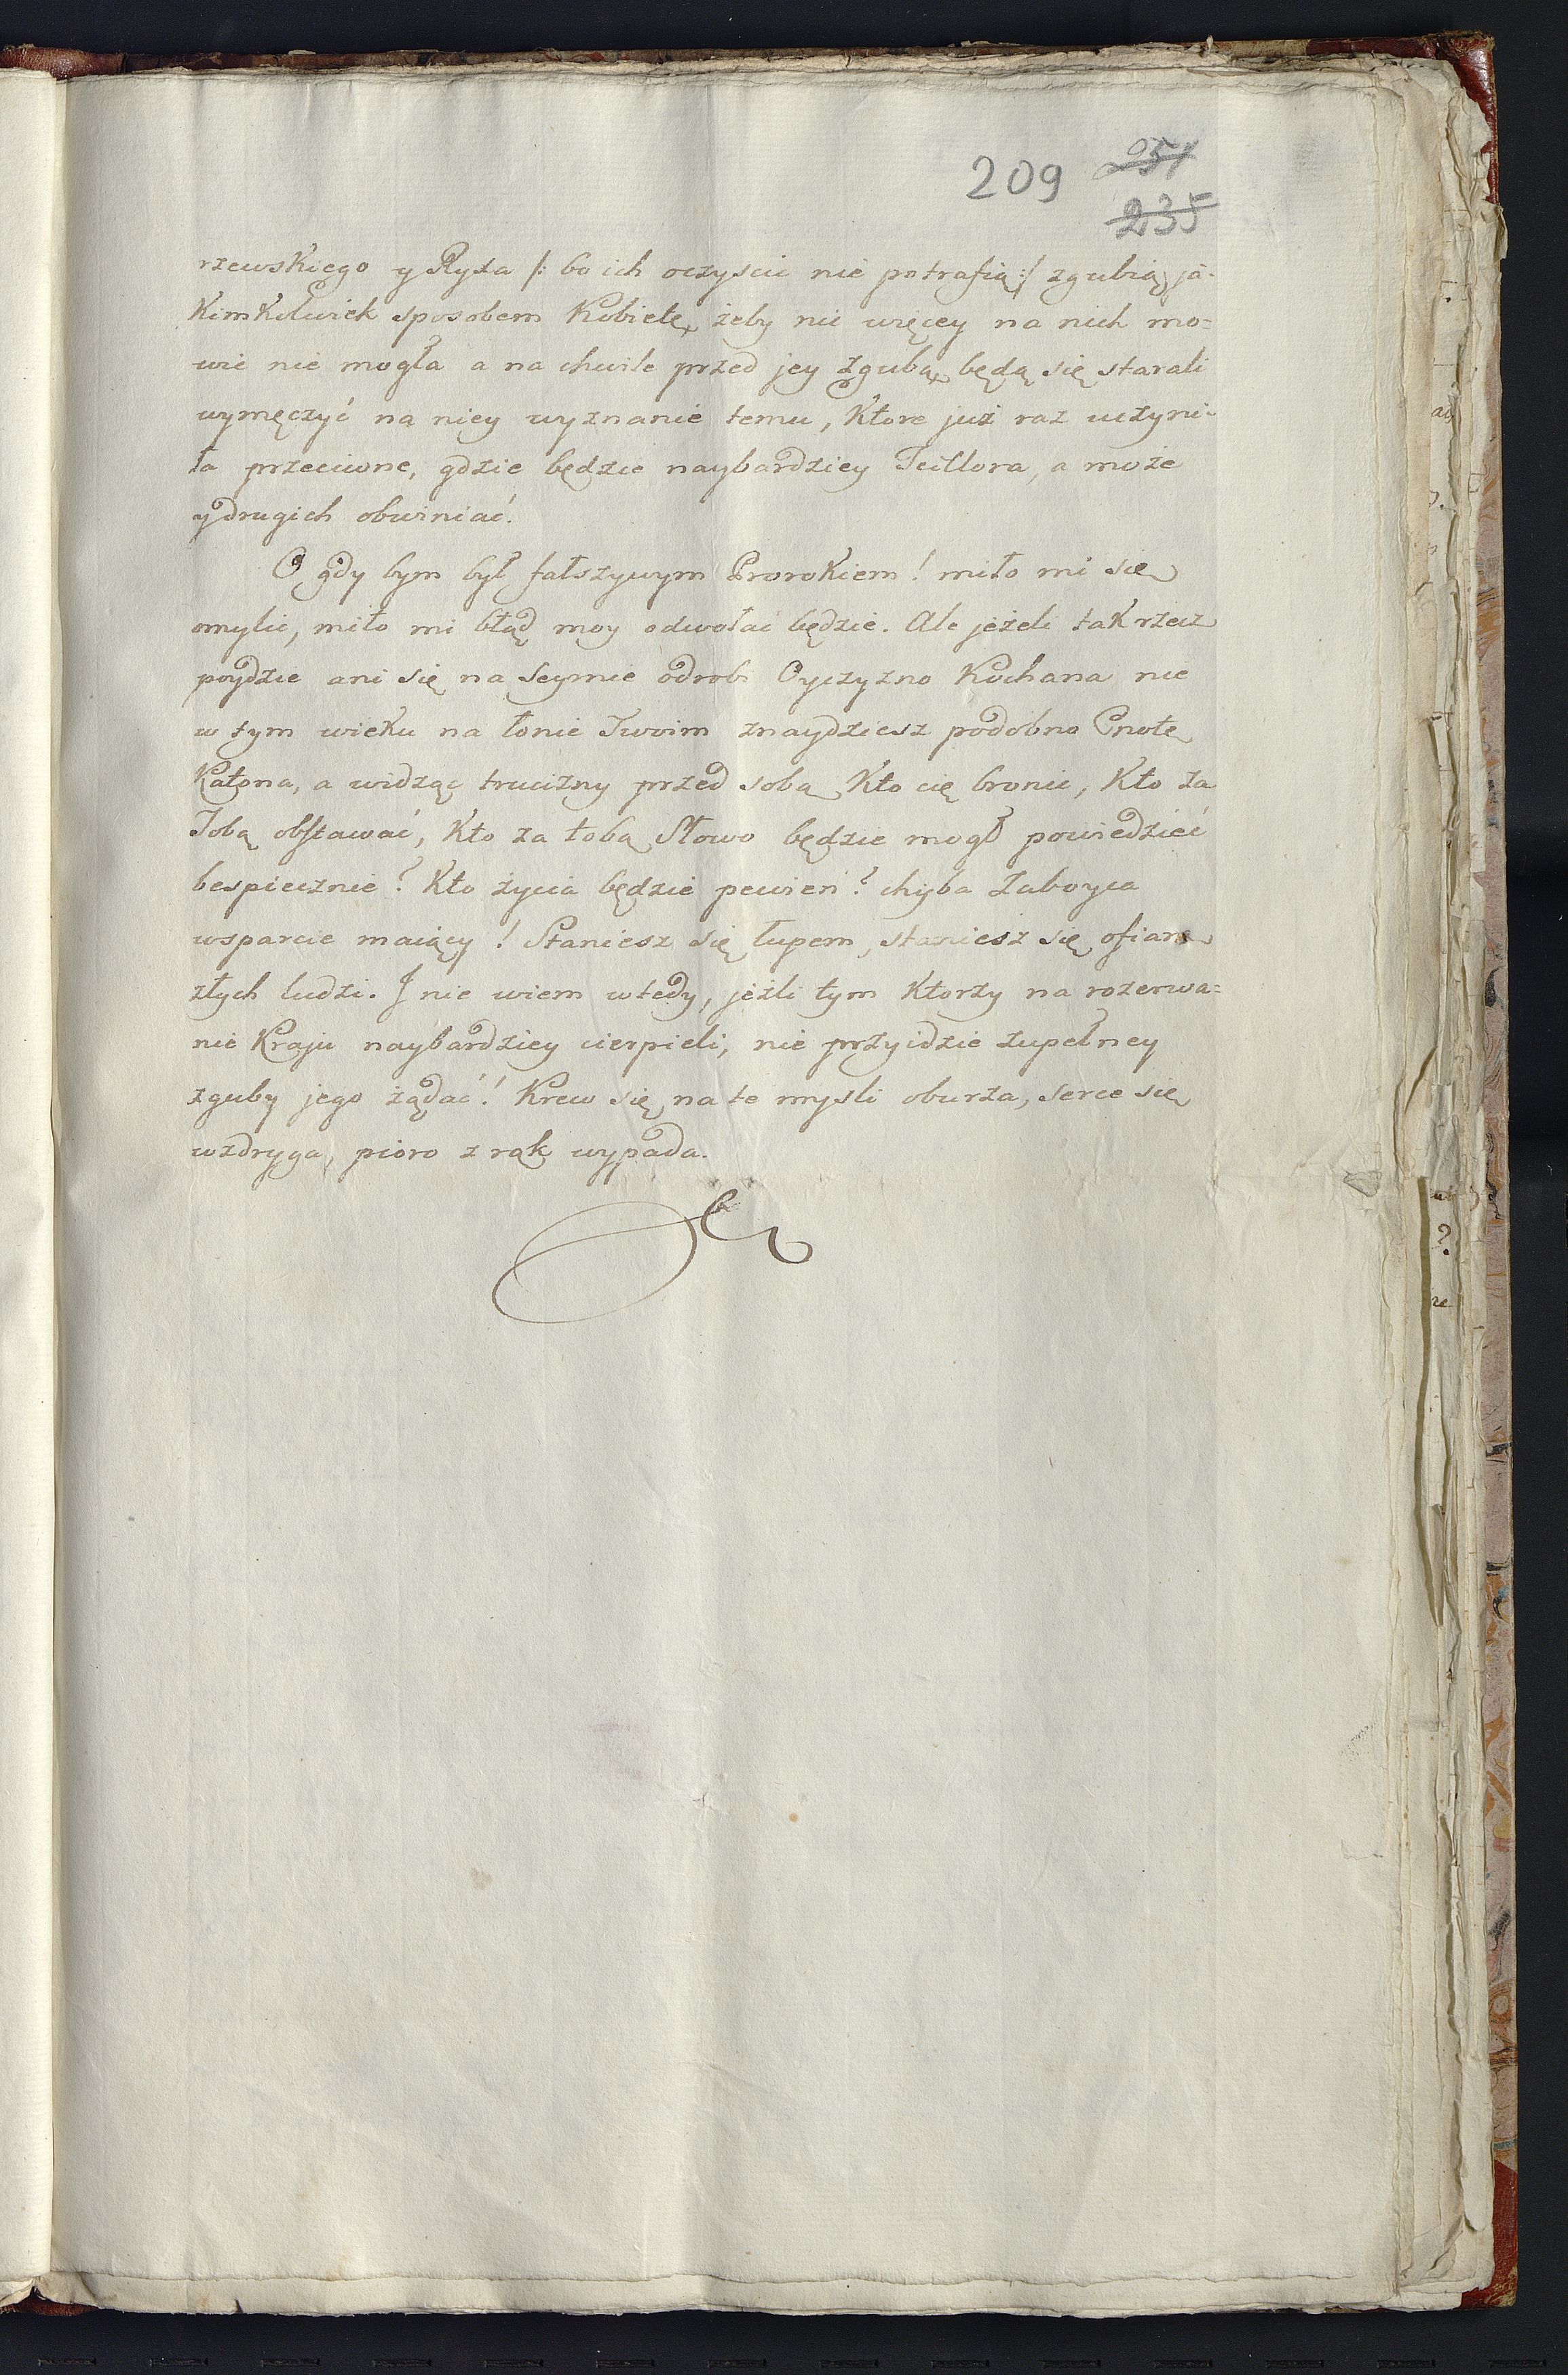 209 251
235
rzewskiego y Ryxa /: bo ich oczyscic nie potrafią :/ zgubią ja-
kimkolwiek sposobem Kobietę, żeby nic więcey na nich mo=
wic nie mogła a na chwile przed jey zgubą, będą się starali
wymęczyć na niey wyznanie temu, Ktore już raz uczyni-
ła przeciwne, gdzie będzie naybardziey Teillora, a może
y drugich obwiniać.
O gdy bym był fałszywym Prorokiem! miło mi się
omylic, miło mi błąd moy odwołać będzie. Ale jeżeli tak rzecz
poydzie ani się na Seymie odrobi Oyczyzno Kochana nie
w tym wieku na łonie Twoim znaydziesz podobno Cnotę
Katona, a widząc trucizny przed sobą Kto cię bronic, Kto za
Tobą obstawać, Kto za tobą Słowo będzie mogł powiedzieć
bespiecznie? Kto życia będzie pewien? chyba Zaboyca
wsparcie maiący! Staniesz się łupem, staniesz się ofiarą
złych ludzi. J nie wiem wtedy, jeżli tym Ktorzy na rozerwa=
nie Kraju naybardziey cierpieli, nie przyidzie zupełney
zguby jego żądać! Krew się na te mysli oburza, serce się
wzdryga, pioro z rąk wypada.